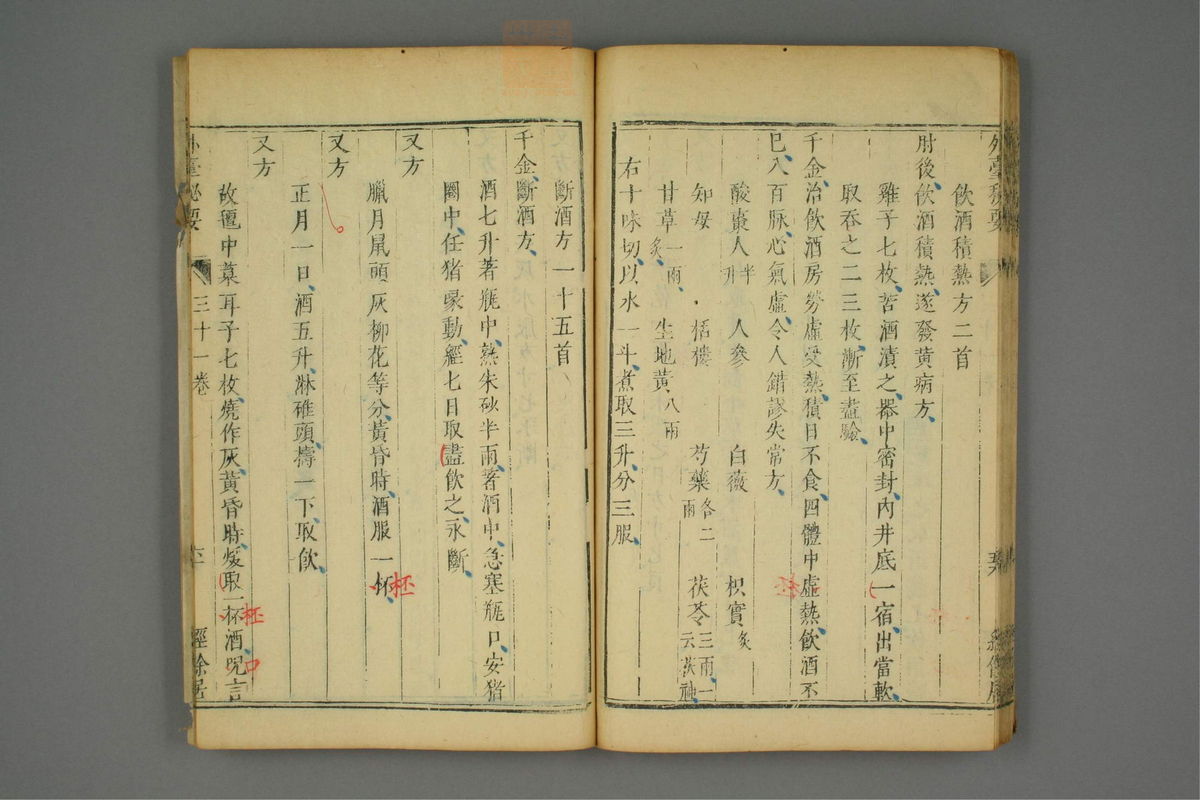 外臺秘要
飲酒積熱方二首
肘後飲酒積熱遂發黃病方
雞子七枚苦酒漬之器中密封內井底一宿出當軟
取吞之二三枚漸至盡驗
千金治飲酒房勞虛受熱積日不食四體中虛熱飲酒不
已八百脉心氣虛令人錯謬失常方
酸棗人半升 人參 白薇 枳實炙
知母 栝樓 芍藥各二兩 茯苓三兩一云茯神
甘草一兩炙 生地黃八兩
右十味切以水一斗煮取三升分三服
斷酒方一十五首
千金斷酒方
酒七升著瓶中熟朱砂半兩著酒中急塞瓶口安猪
圈中任猪揺動經七日取盡飲之永斷
又方
臘月鼠頭灰柳花等分黃昏時酒服一杯
杯
又方
正月一日酒五升淋碓頭擣一下取飲
又方
故氊中葈耳子七枚燒作灰黃昏時煖取一杯酒呪言
杯
口
外臺秘要
三十一卷
經餘居